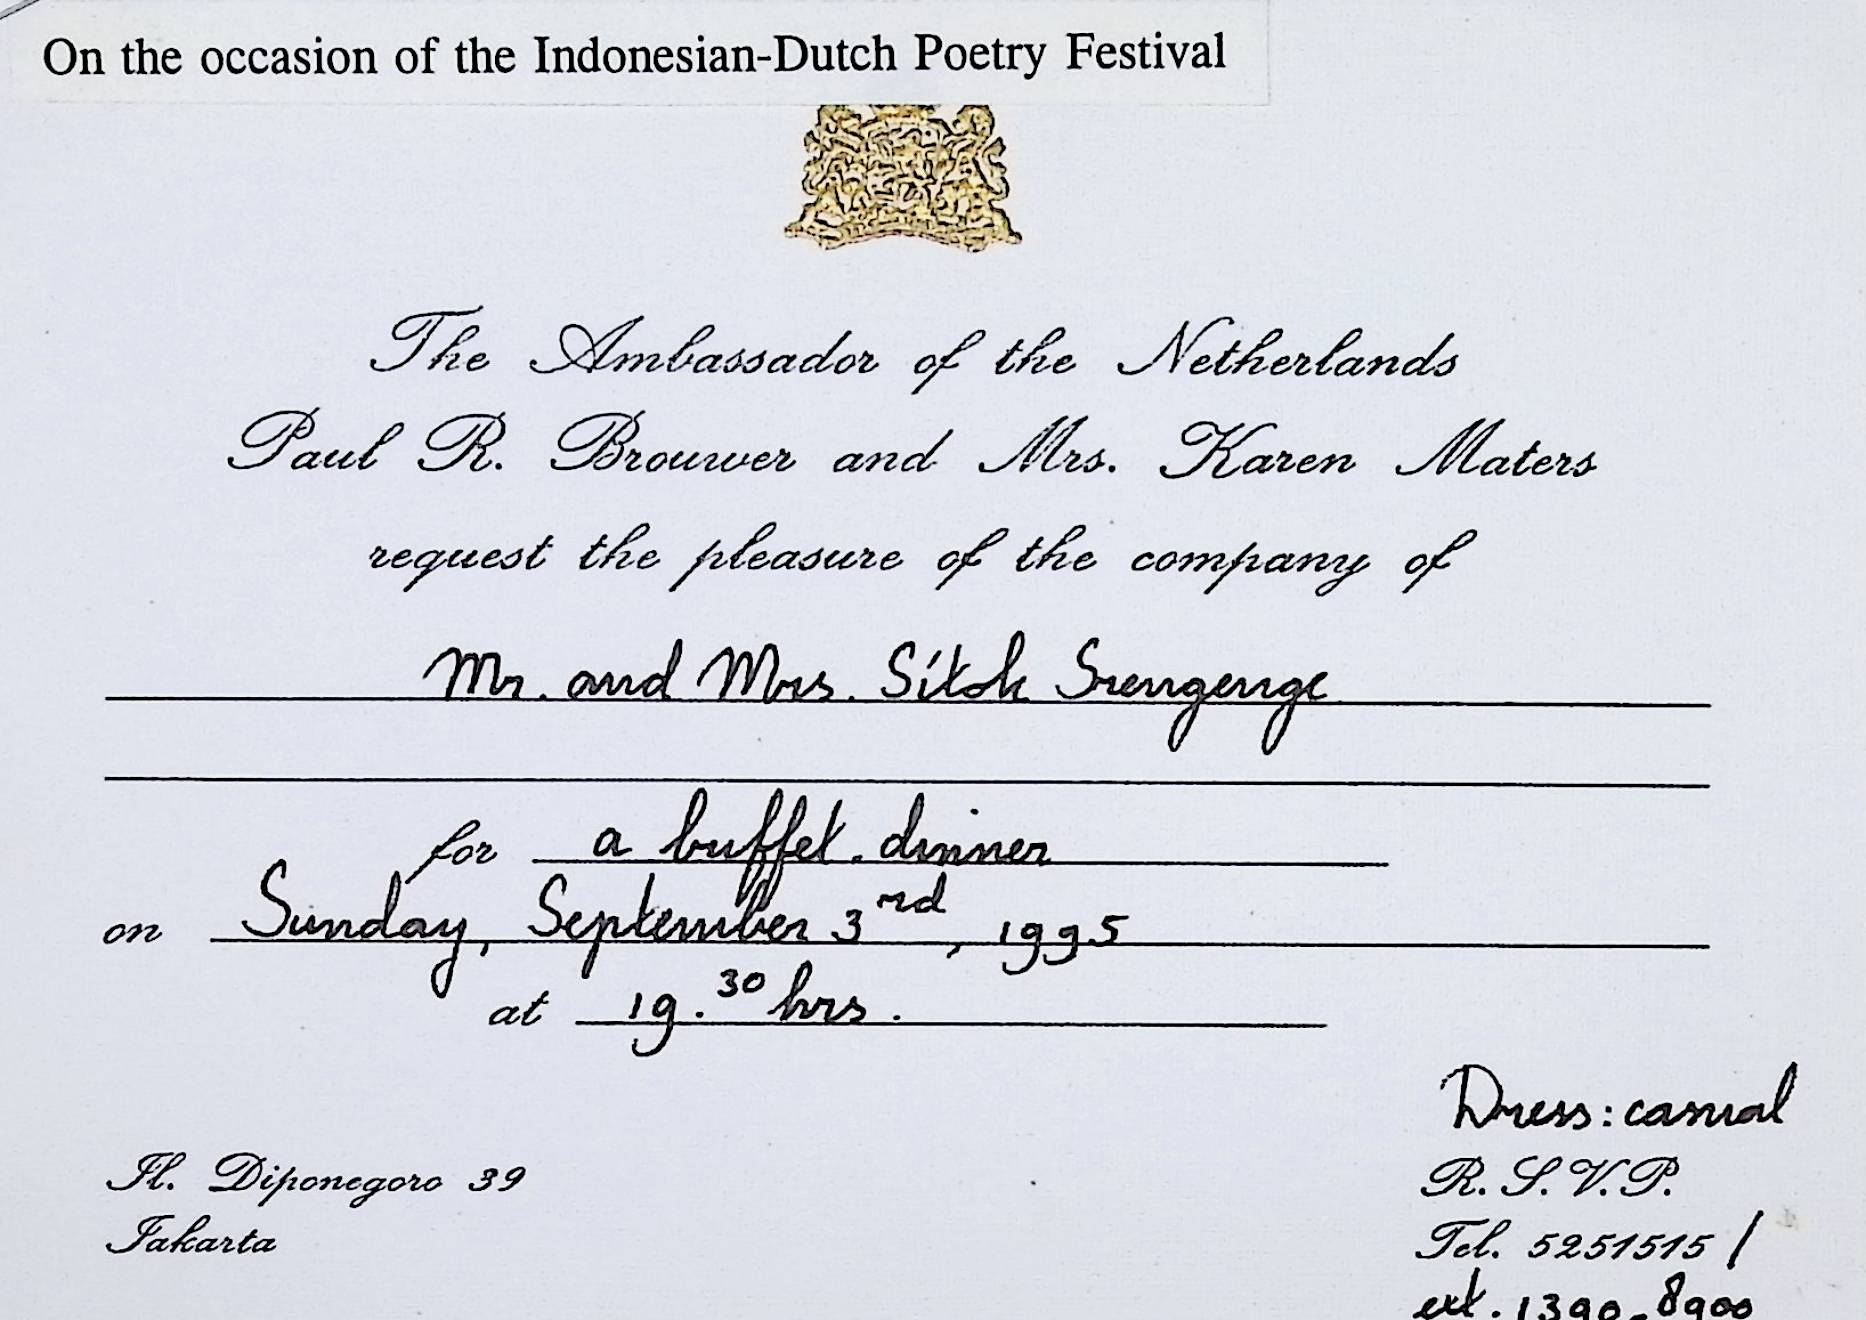 On the occasion of the Indonesian-Dutch Poetry Festival
The Ambassador of the Netherlands
Paul R. Brouwer and Mrs. Karen Maters
request the pleasure of the company of
Mr. and Mrs. Sitok Srengenge
for a buffet-dinner
on Sunday, September 3rd, 1995
at 19.30 hrs.
Dress: casual
Jl. Diponegoro 39
Jakarta
R.S.V.P.
Tel. 5251515 /
ext. 1390-8900